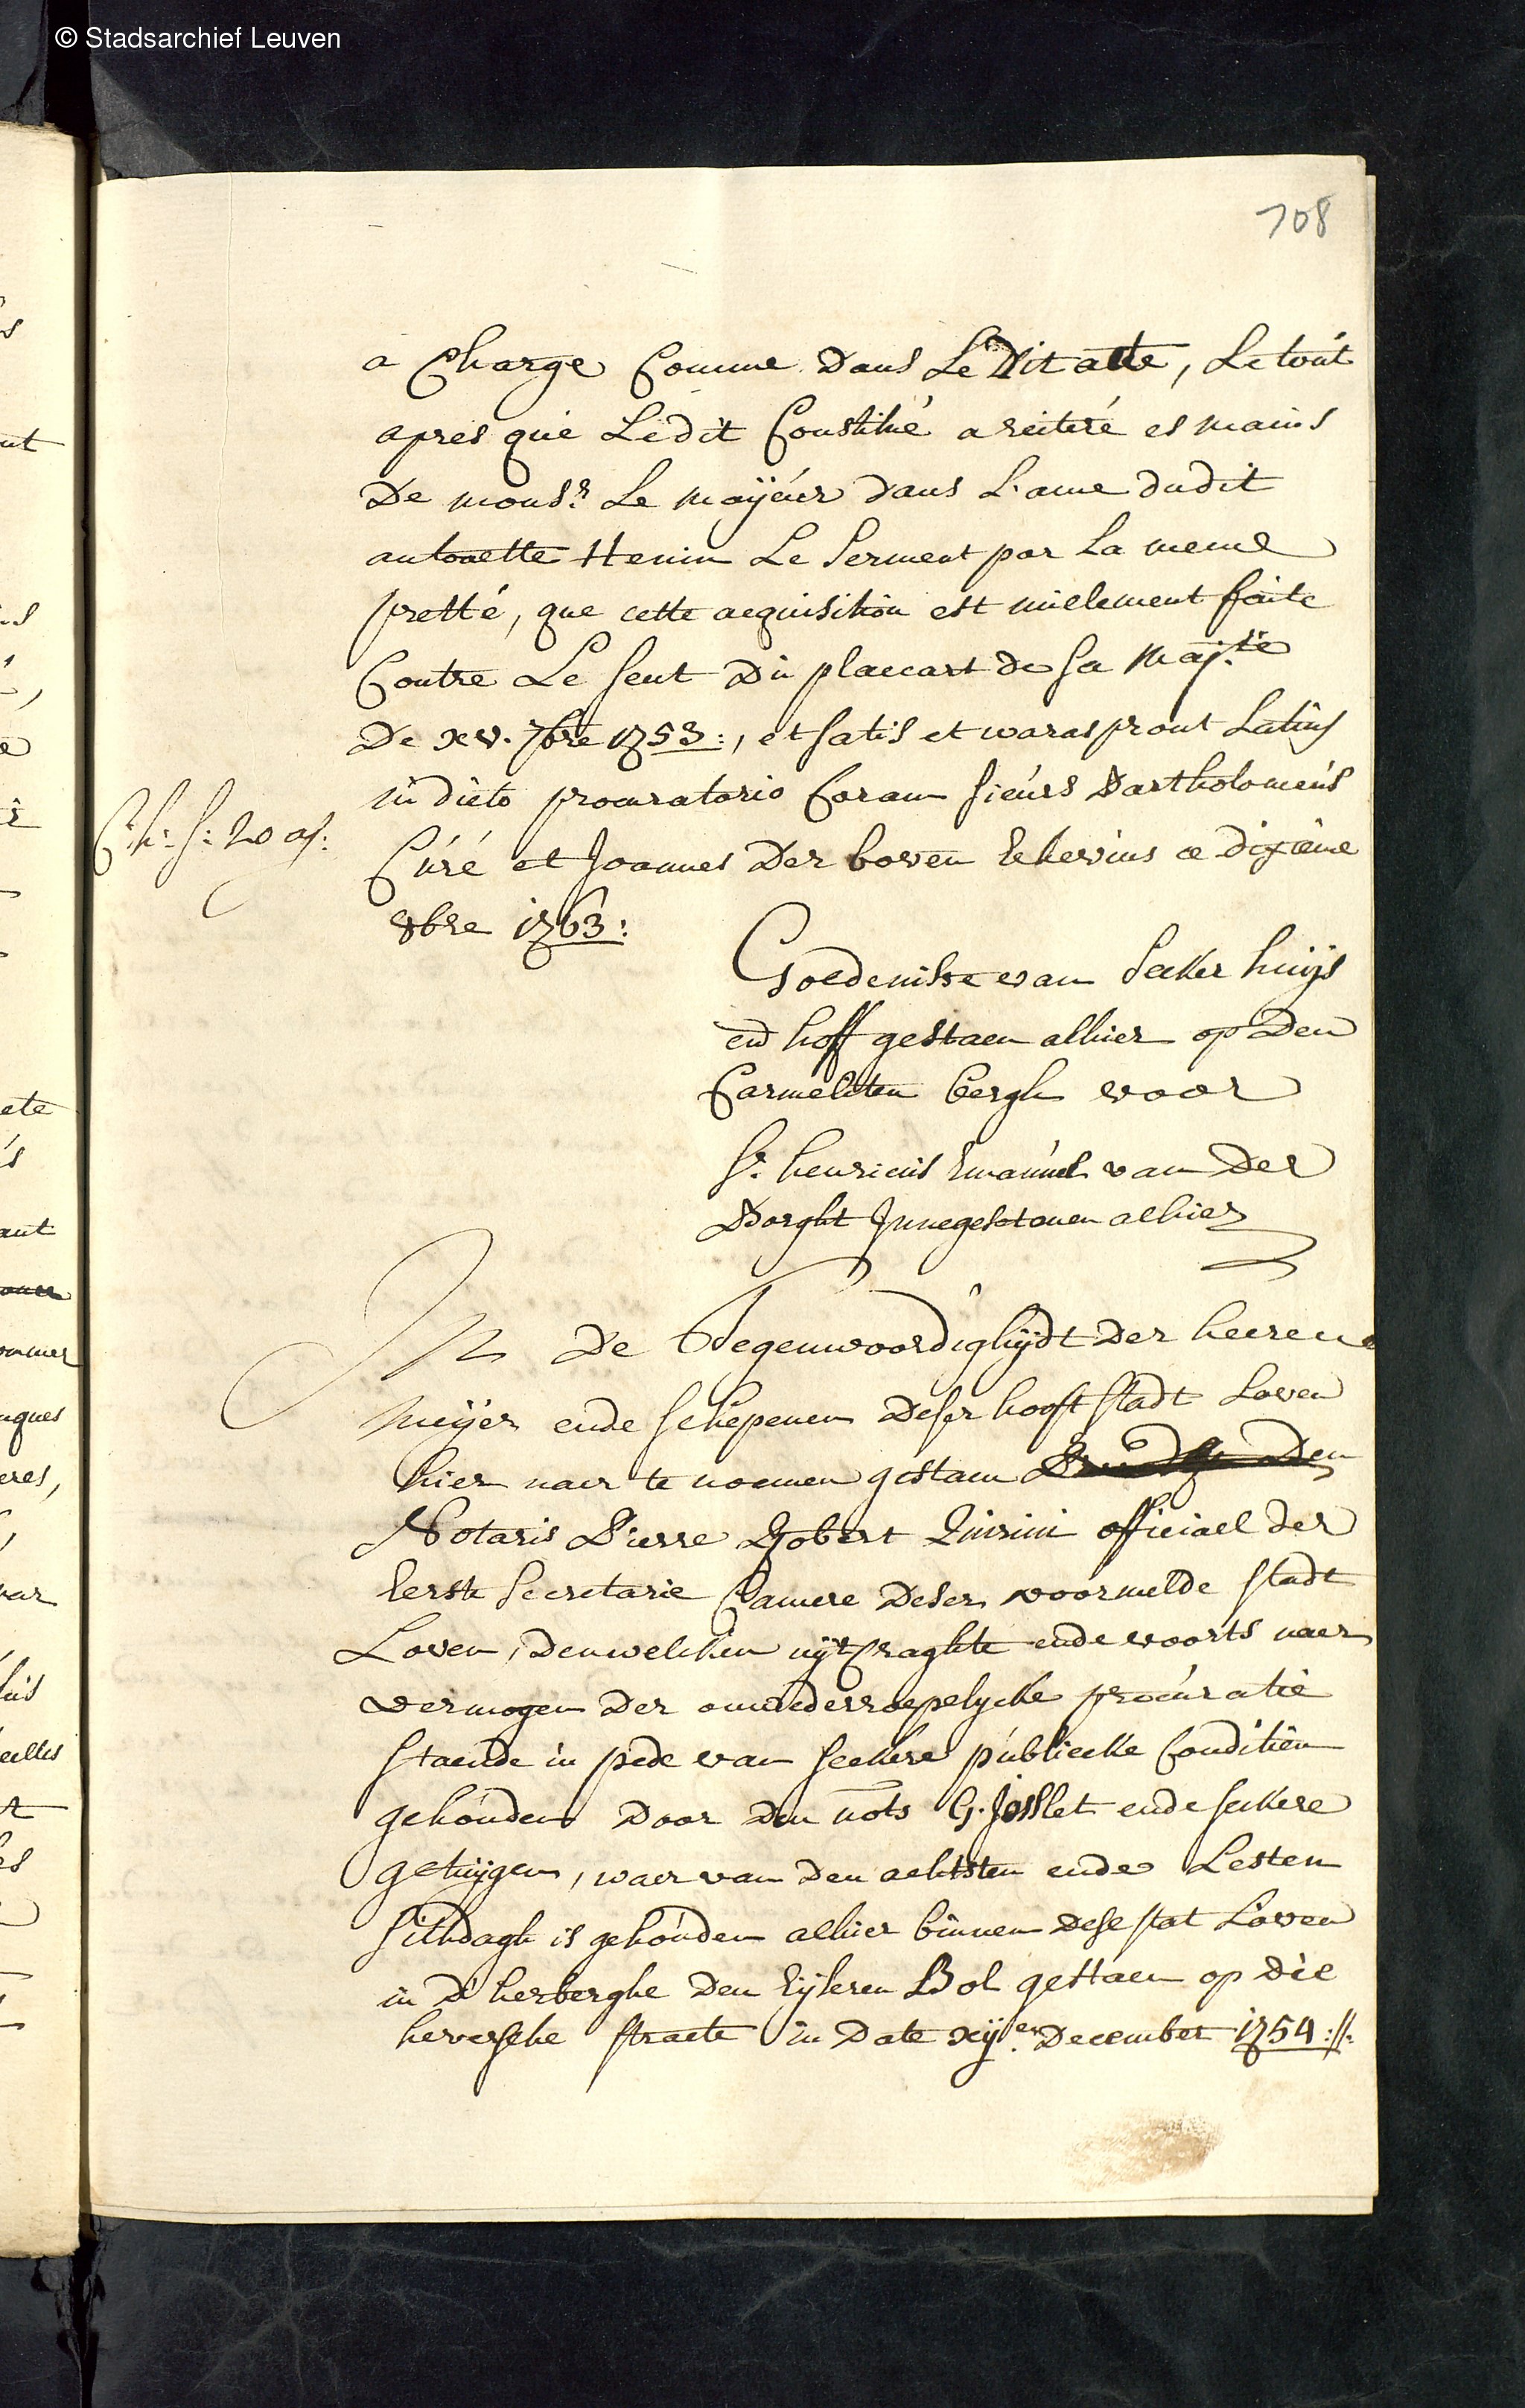 © Stadsarchief Leuven
708
a Charge Comme dans Le Dit acte, Le tout
apres que Ledit Constitué a reiteré es mains
De mons.r Le maÿeur dans L'ame dudit
antonette Henin Le Serment par La meme
pretté, que cette acquisition est nullement faite
Contre Le sent du placcart de sa Maj.té
De xv. 7bre 1753:, et satis et waras prout Latius
in dicto procuratorio Coram sieurs Bartholomeus
Curé et Joannes Der boven Echevins ce dixieme
8bre 1763:
Goedenisse van Seeker huijs
end hoff gestaen alhier op Den
Carmeliten bergh voor
Sr. henricus Emanuel van Der
Borght Innegesetenen alhier
In De Tegenwoordighijdt Der heeren
Meijer ende Schepenen Deser hooft stadt Loven
hier naer te noemen gestaen Den
Notaris Pierre Robert Quirini officiael Der
Eerste Secretarie Camere Deser voormelde stadt
Loven, Denwelcken uijt craghte ende voorts naer
vermogen Der onwederroepelycke procuratie
staende in pede van seekere publiecke Conditien
gehouden Door Den nots G. Josslet ende seekere
getuijgen, waer van Den achtsten ende Lesten
sithdagh is gehouden alhier binnen dese stat Loven
in D'herberghe Den Eijseren Bol gestaen op Die
heversche straete in Date xij.en December 1754://: